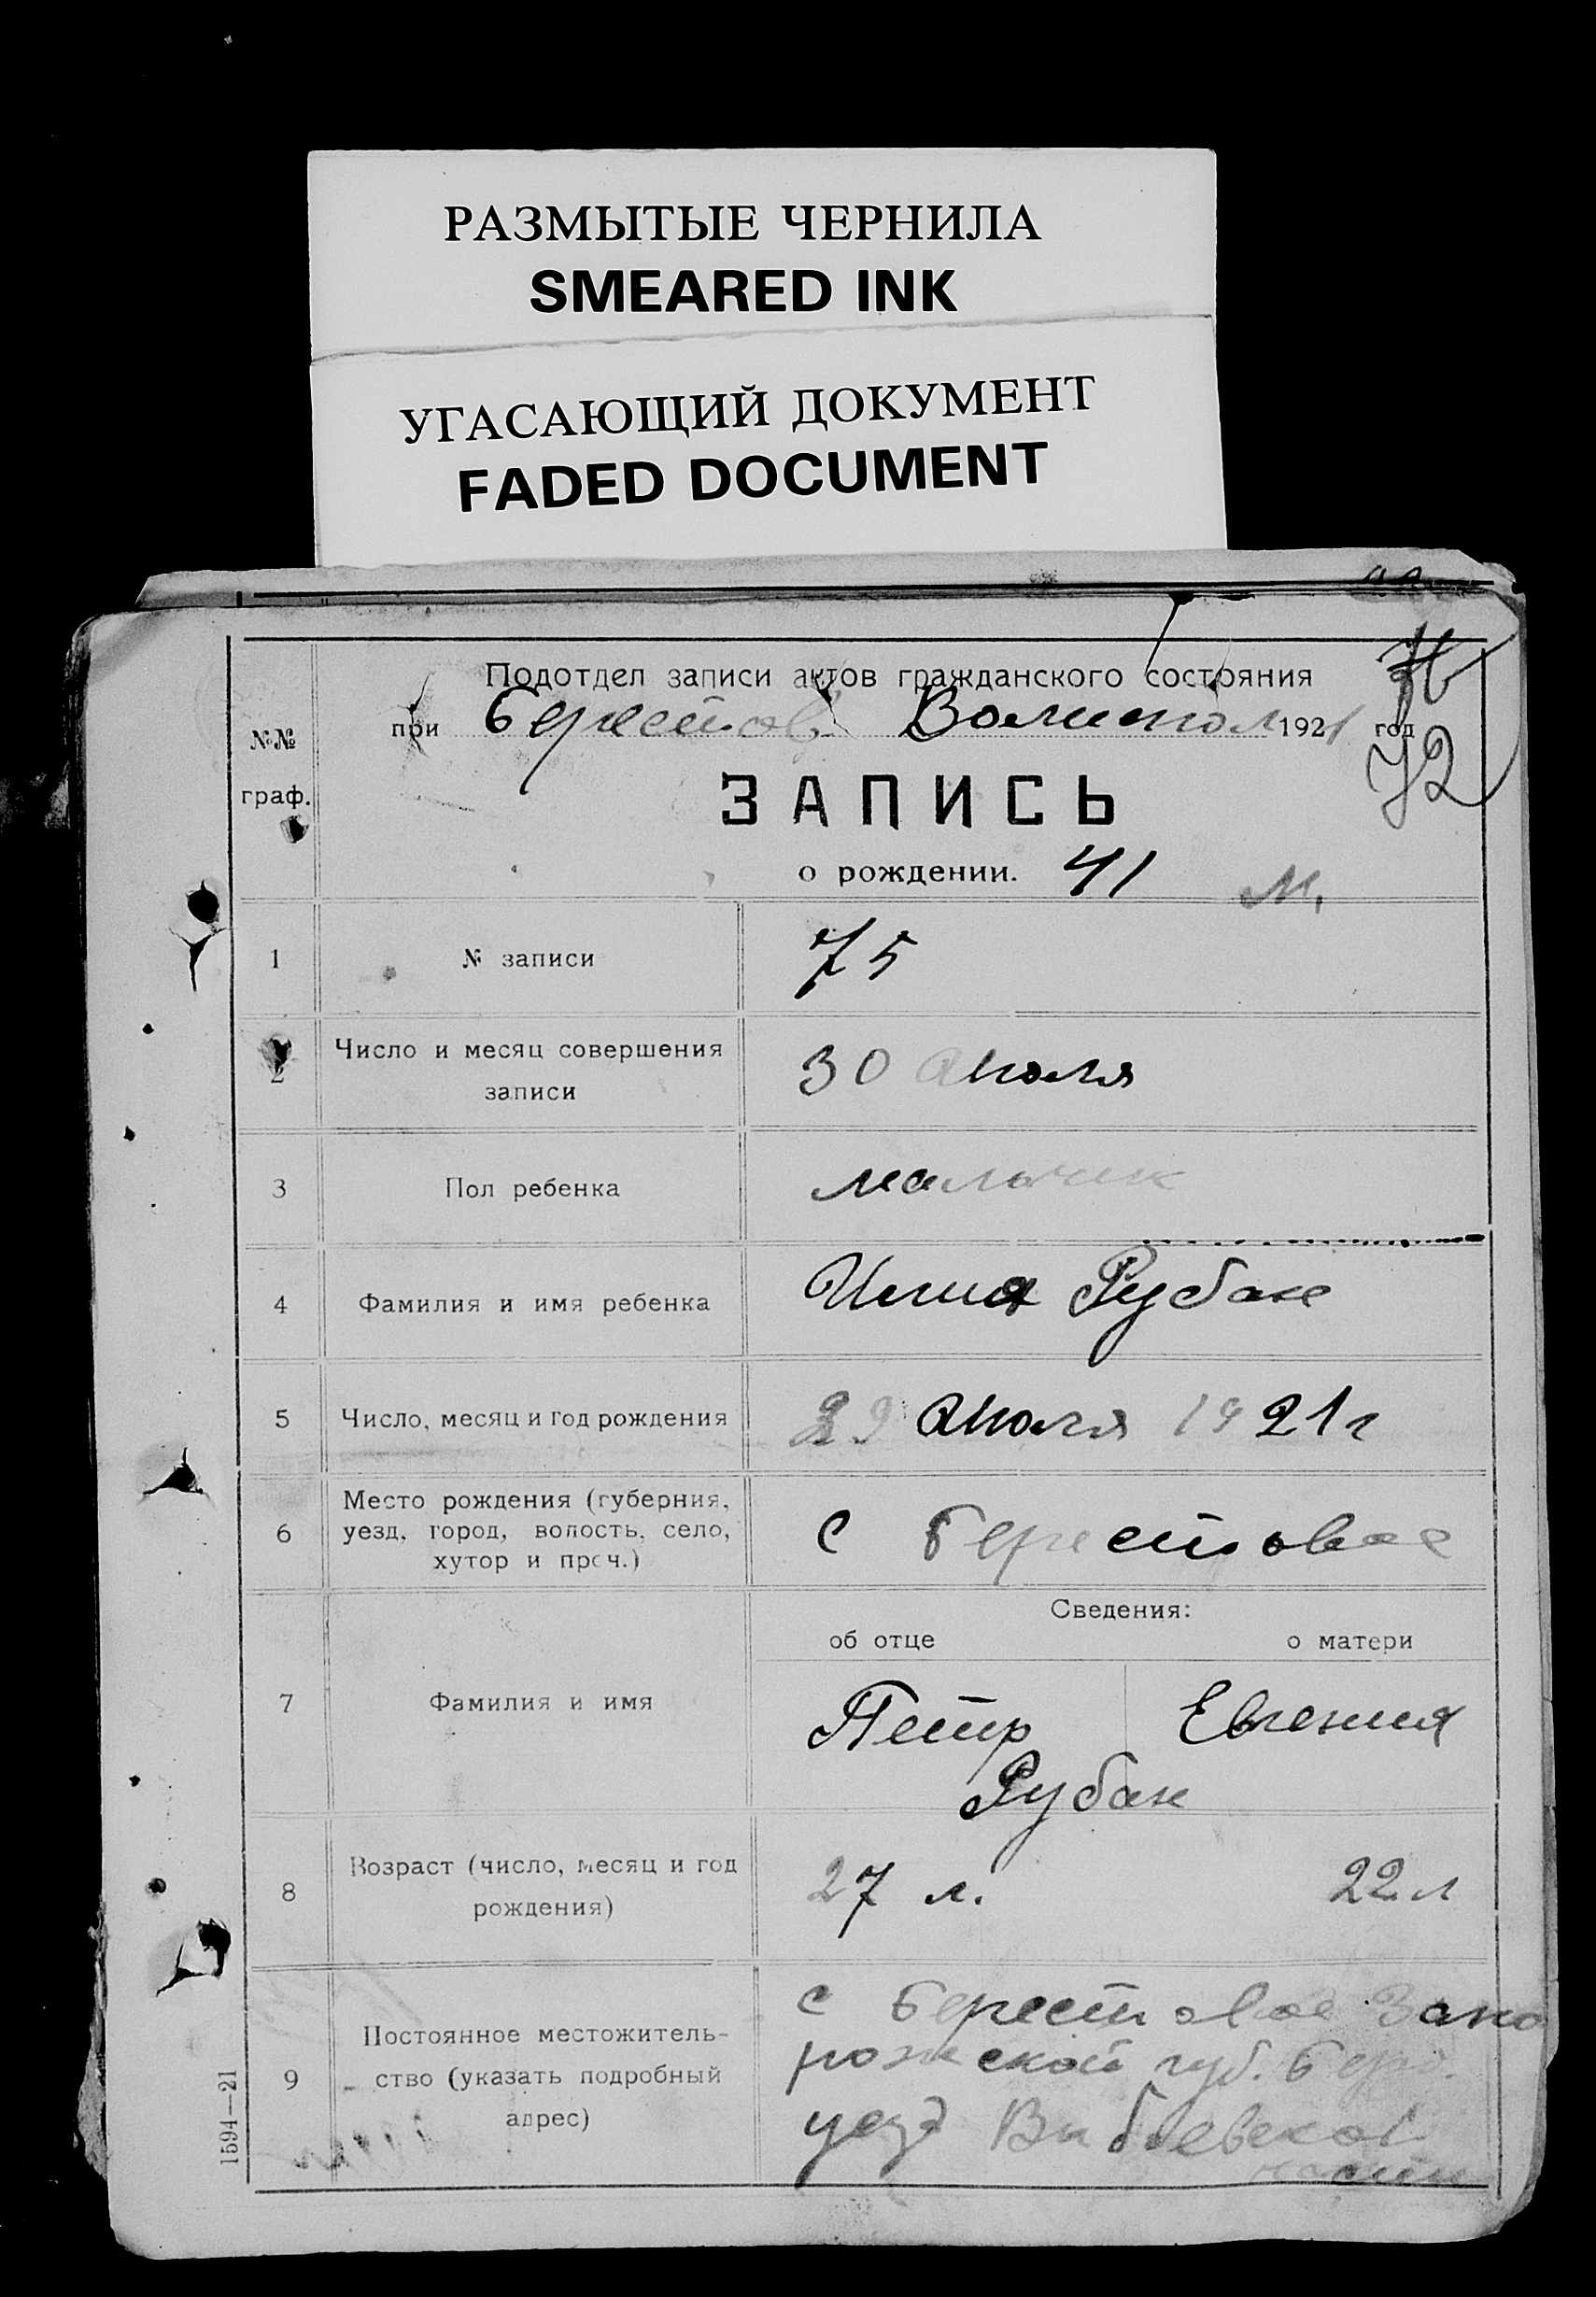 РАЗМЫТЫЕ ЧЕРНИЛА
SMEARED INK
УГАСАЮЩИЙ ДОКУМЕНТ
FADED DOCUMENT
Подотдел записи актов гражданского состояния
при Берестов. 1921 год
72
№№ граф.
ЗАПИСЬ
о рождении. 41 М.
1 № записи 75
2 Число и месяц совершения
записи
30 Июля
3 Пол ребенка мальчик
4 Фамилия и имя ребенка Илия Рубан
5 Число, месяц и год рождения Июля 1921 г
6 Место рождения (губерния,
уезд, город, волость, село,
хутор и проч.)
с Берестовое
Сведения:
об отце о матери
7 Фамилия и имя Петр Евгения
Рубан
8 Возраст (число, месяц и год
рождения)
27 л. 22 л
9 Постоянное местожитель-
ство (указать подробный
адрес)
с Берестовое Запо
рожской губ. Берд.
уезд
1594—21